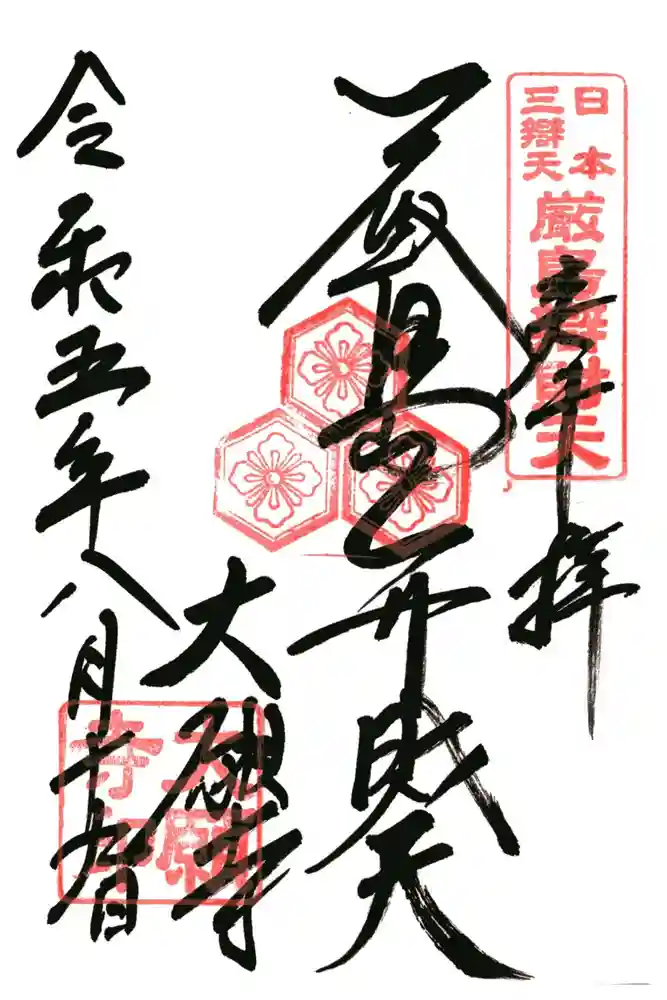 奉拝
日本
三辯天
厳島辯財天
厳島弁財天
大願寺
大願寺印
令和五年八月十九日